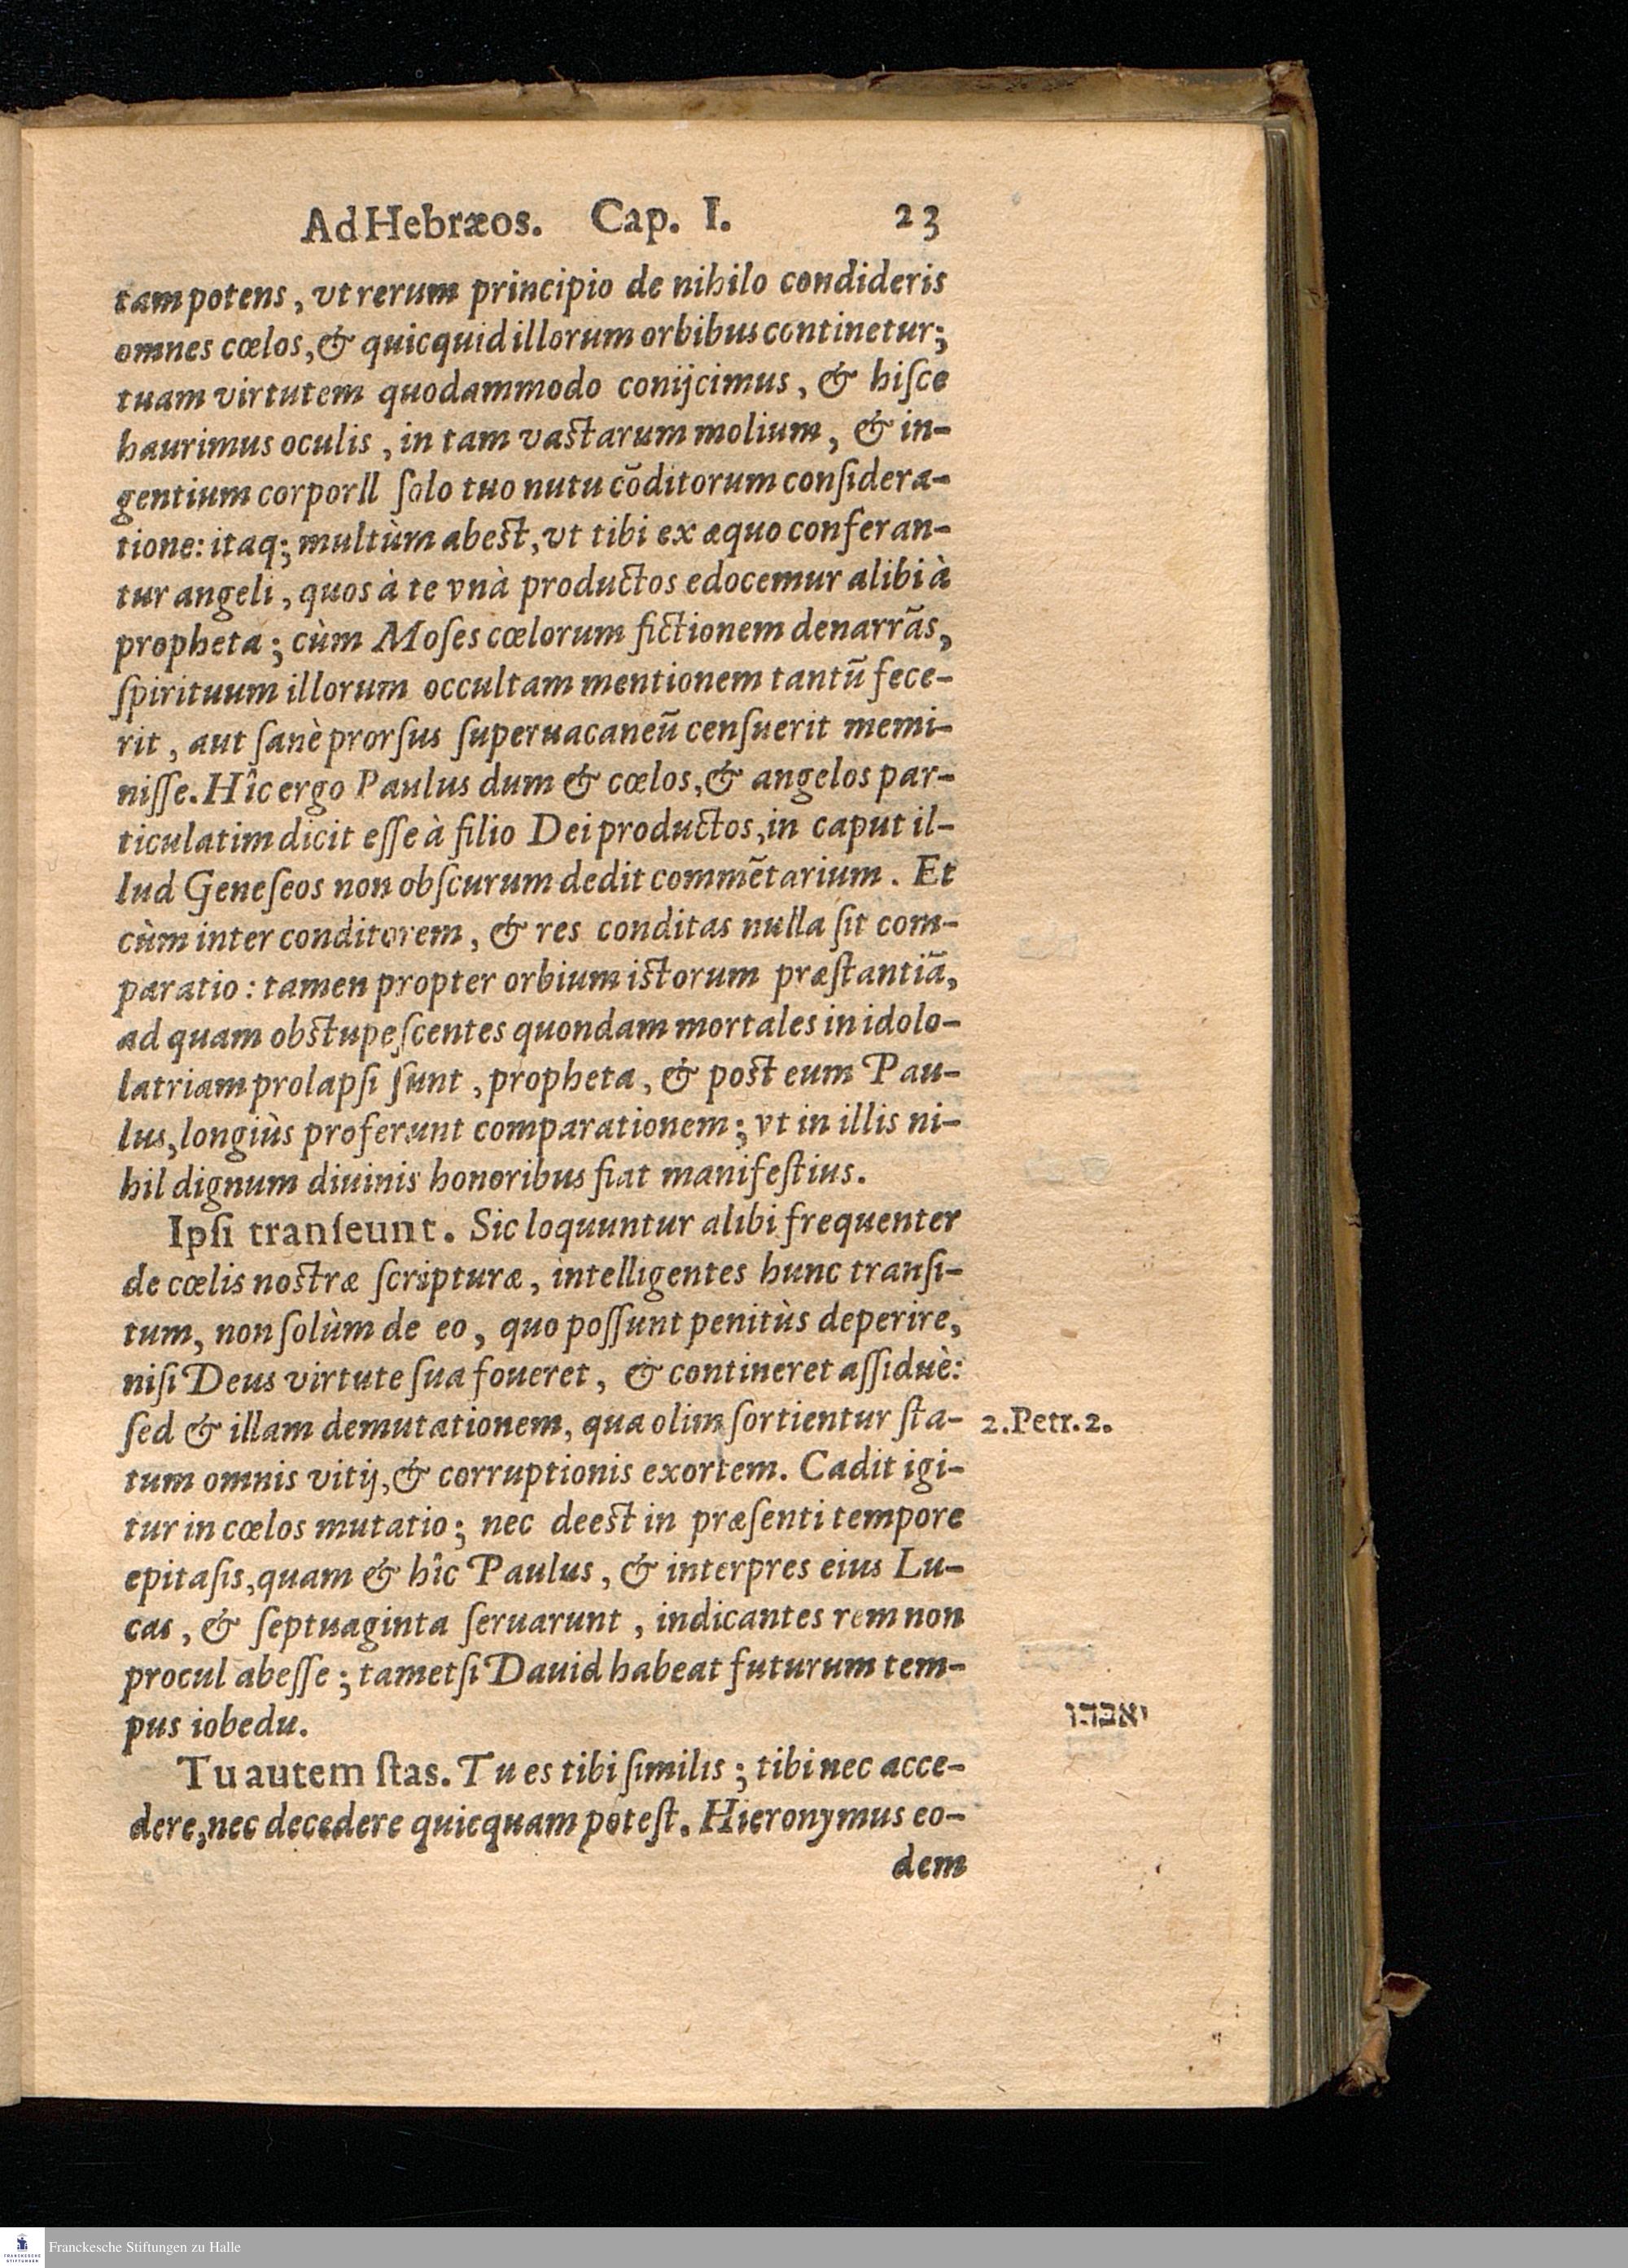 Ad Hebræos. Cap. I. 23
tam potens, vt rerum principio de nihilo condideris
omnes cœlos, & quicquid illorum orbibus continetur;
tuam virtutem quodammodo conijcimus, & hiſce
haurimus oculis, in tam vastarum molium, & in-
gentium corporll ſolo tuo nutu cōditorum conſidera-
tione: itaq; multùm abest, vt tibi ex æquo conferan-
tur angeli, quos à te vnà productos edocemur alibi à
propheta; cùm Moſes cœlorum fictionem denarrās,
ſpirituum illorum occultam mentionem tantū fece-
rit, aut ſanè prorſus ſuperuacaneū cenſuerit memi-
niſſe. Hîc ergo Paulus dum & cœlos, & angelos par-
ticulatim dicit eſſe à filio Dei productos, in caput il-
lud Geneſeos non obſcurum dedit commētarium. Et
cùm inter conditorem, & res conditas nulla ſit com-
paratio: tamen propter orbium istorum præſtantiā,
ad quam obstupeſcentes quondam mortales in idolo-
latriam prolapſi ſunt, propheta, & post eum Pau-
lus, longiùs proferunt comparationem; vt in illis ni-
hil dignum diuinis honoribus fiat manifeſtius.
Ipſi tranſeunt. Sic loquuntur alibi frequenter
de cœlis nostræ ſcripturæ, intelligentes hunc tranſi-
tum, non ſolùm de eo, quo poſſunt penitùs deperire,
niſi Deus virtute ſua foueret, & contineret aſſiduè:
ſed & illam demutationem, qua olim ſortientur ſta-
2. Petr. 2.
tum omnis vitij, & corruptionis exortem. Cadit igi-
tur in cœlos mutatio; nec deest in præſenti tempore
epitaſis, quam & hîc Paulus, & interpres eius Lu-
cas, & ſeptuaginta ſeruarunt, indicantes rem non
procul abeſſe; tametſi Dauid habeat futurum tem-
pus iobedu.
יאבדו
Tu autem ſtas. Tu es tibi ſimilis; tibi nec acce-
dere, nec decedere quicquam poteſt. Hieronymus eo-
dem
Franckesche Stiftungen zu Halle